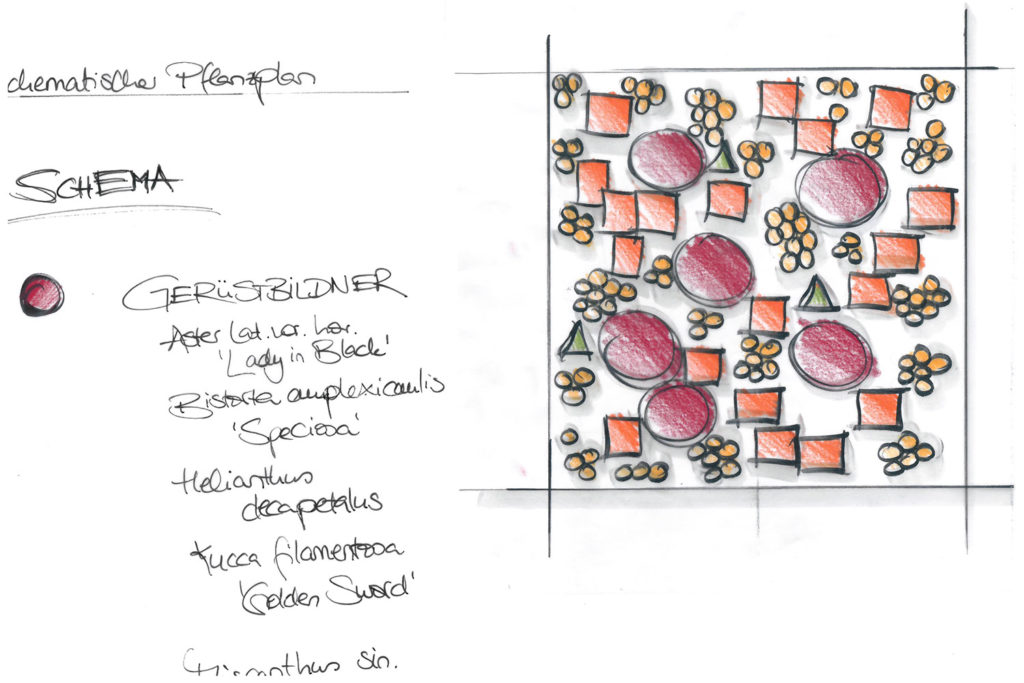 chematischer Pflanzplan
SCHEMA
GERÜSTBILDNER
Aster lat. var. hor.
'Lady in Black'
Bistorta amplexicaulis
'Speciosa'
Helianthus
decapetalus
Yucca filamentosa
'Golden Sword'
Miscanthus sin.